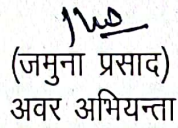 (जमुना प्रसाद)
अवर अभियन्ता